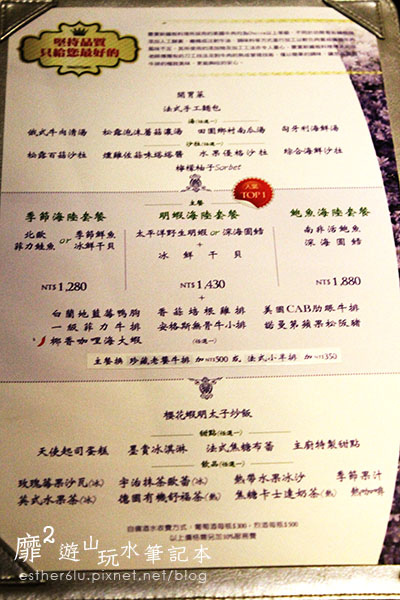 堅持品質
只給您最好的
開胃菜
法式手工麵包
湯(任選一)
俄式牛肉清湯 松露泡沫蘑菇濃湯 田園鄉村南瓜湯 匈牙利海鮮湯
沙拉(任選一)
松露百菇沙拉 燻雞佐菇味塔塔醬 水果優格沙拉 綜合海鮮沙拉
檸檬柚子Sorbet
人氣
TOP1
主餐
季節海陸套餐 明蝦海陸套餐 鮑魚海陸套餐
北歐 季節鮮魚 太平洋野生明蝦 or 深海圓鱈 南非活鮑魚
菲力鮭魚 or 冰鮮干貝 + 深海圓鱈
冰鮮干貝
NT$ 1,280 NT$ 1,430 NT$ 1,880
+
白蘭地藍莓鴨胸 香菇培根雞排 美國CAB肋眼牛排
一級菲力牛排 安格斯無骨牛小排 諾曼第蘋果松阪豬
椰香咖哩海大蝦 (任選一)
主餐換 珍藏老饕牛排 加NT$500 或 法式小羊排 加NT$350
櫻花蝦明太子炒飯
甜點(任選一)
天使起司蛋糕 墨賣冰淇淋 法式焦糖布蕾 主廚特製甜點
飲品(任選一)
玫瑰莓果沙瓦(冰) 宇治抹茶歐蕾(冰) 熱帶水果冰沙 季節果汁
英式水果茶(冰) 德國有機舒福茶(熱) 焦糖卡士達奶茶(熱) 熱咖啡
自備酒水收費方式:葡萄酒每瓶$300,烈酒每瓶$500
以上價格需另加10%服務費
靡2遊山玩水筆記本
esther6lu.pixnet.net/blog